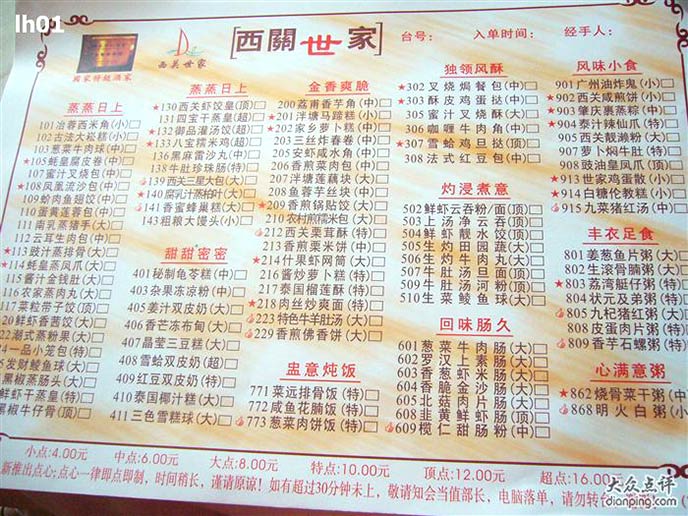 lh01
國家特级酒家
西关世家
[西關世家]
台号: 入单时间: 经手人:
蒸蒸日上
101冶蓉西米角(小)
102古法大崧糕(小)
103葱菜牛肉球(中)
★105蚝皇腐皮卷(中)
107蜜汁叉烧包(中)
★108凤凰流沙包(中)
109蛤肉鱼翅饺(中)
110蛋黄莲蓉包(中)
111南乳蒸猪手(大)
112云耳生肉包(中)
★113豉汁蒸排骨(大)
★114蚝皇蒸凤爪(大)
115酱汁金钱肚(大)
116农家蒸肉丸(大)
117菜粒带子饺(顶)
120鲜虾香茜饺(大)
122潮式蒸粉果(大)
124一品小笼包(特)
125发财鲮鱼球(大)
黑椒蒸肠头(大)
鲜虾干蒸皇(特)
黑椒牛仔骨(顶)
蒸蒸日上
★130西关虾饺皇(顶)
131四宝干蒸皇(超)
★132御品灌汤饺(超)
★133八宝糯米鸡(超)
136黑麻雷沙丸(中)
138牛肚珍珠肠(特)
139西关三星大包(大)
★140腐乳汁蒸柏叶(大)
141香蜜蜂巢糕(大)
143粗粮大馒头(小)
甜甜密密
401秘制龟苓糕(中)
403杂果冻凉粉(中)
405姜汁双皮奶(大)
406香芒冻布甸(大)
407晶莹三豆糕(大)
408雪蛤双皮奶(超)
409红豆双皮奶(特)
410泰国椰汁糕(大)
411三色雪糕球(大)
金香爽脆
200荔甫香芋角(中)
★201泮塘马蹄糕(小)
★202家乡萝卜糕(中)
203三丝炸春卷(中)
205安虾咸水角(中)
206香煎菜肉包(中)
207泮塘莲藕块(大)
208鱼蓉芋丝块(中)
★209香煎锅贴饺(大)
210农村煎糯米包(大)
★212西关栗茸酥(特)
213香煎栗米饼(中)
★214什果虾网筒(大)
216酱炒萝卜糕(特)
217泰国榴莲酥(特)
★218肉丝炒爽面(特)
223特色牛羊肚汤(大)
229香煎佛香饼(大)
盅意炖饭
771菜远排骨饭(特)
772咸鱼花腩饭(特)
773葱菜肉饼饭(特)
独领风酥
★302叉烧焗餐包(中)
★303酥皮鸡蛋挞(中)
305蜜汁叉烧酥(大)
306咖喱牛肉角(中)
★307雪蛤鸡旦挞(顶)
308法式红豆包(中)
灼浸煮意
502鲜虾云吞粉/面(顶)
503上汤净云吞(顶)
504鲜虾靓水饺(顶)
505生灼田园蔬(大)
506生灼牛肉丸(大)
507牛肚汤旦面(顶)
509牛肚汤河粉(顶)
510生菜鲮鱼球(大)
回味肠久
601葱菜牛肉肠(大)
602罗汉上素肠(大)
603香葱虾米肠(大)
604香脆金沙肠(大)
605北菇肉片肠(大)
608韭黄鲜虾肠(顶)
609榄仁甜肠粉(中)
风味小食
901广州油炸鬼(小)
★902西关咸煎饼(小)
★903肇庆裹蒸粽(中)
★904泰汁辣仙爪(特)
905西关靓濑粉(大)
907萝卜焖牛肚(特)
908豉油皇凤爪(顶)
★913世家鸡蛋散(小)
★914白糖伦教糕(小)
915九菜猪红汤(中)
丰衣足食
801姜葱鱼片粥(大)
802生滚骨腩粥(大)
★803荔湾艇仔粥(特)
804状元及弟粥(特)
805九杞猪红粥(大)
808皮蛋肉片粥(特)
809香芋石螺粥(特)
心满意粥
★862烧骨菜干粥(中)
868明火白粥(小)
小点:4.00元 中点:6.00元 大点:8.00元 特点:10.00元 顶点:12.00元 超点:16.00元
新推出点心;点心一律即点即制,时间稍长,谨请原谅!如有超过30分钟未上,敬请知会当值部长,电脑落单,请勿转台
大众点评
dianping.com